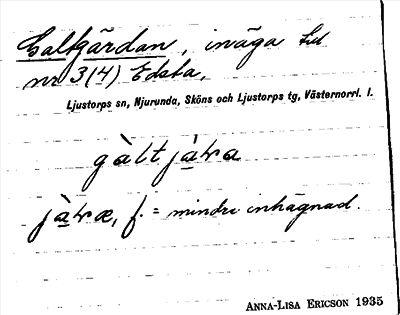 Galtgärdan, inäga till
nr 3(4) Edsta,
Ljustorps sn, Njurunda, Sköns och Ljustorps tg, Västernorrl. l.
gàlt jàra
jàræ, f. = mindre inhägnad.
ANNA-LISA ERICSON 1935